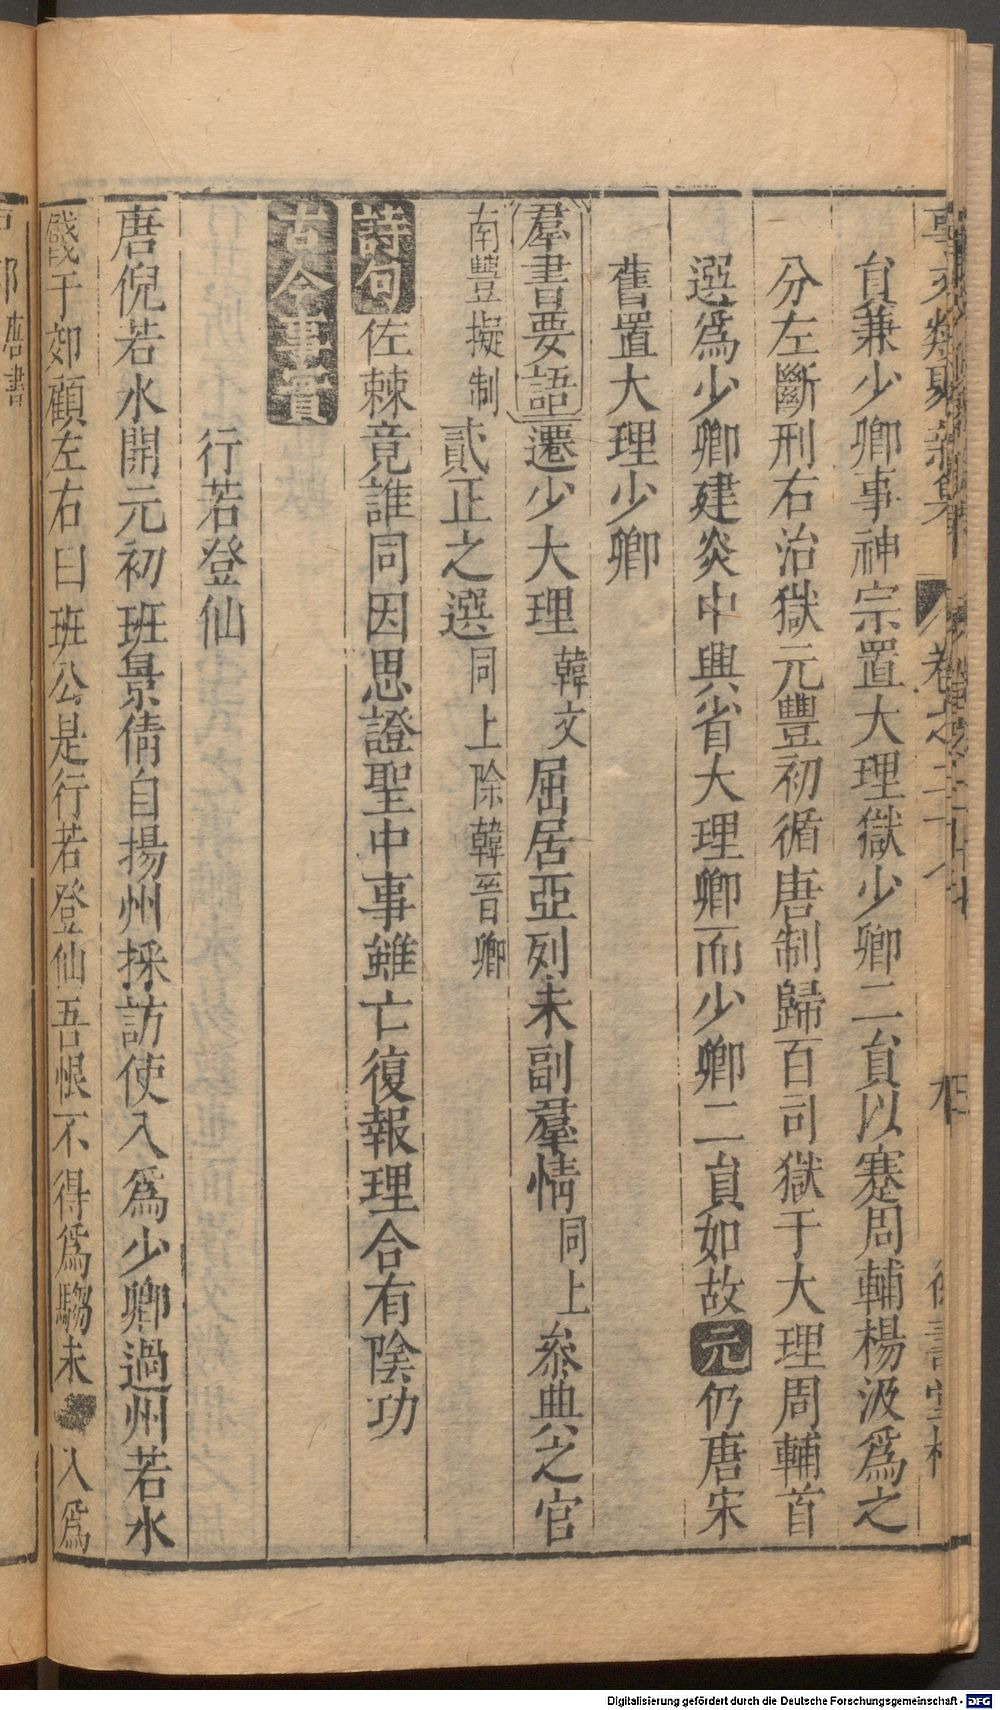 貟兼少卿事神宗置大理獄少卿二貟以蹇周輔楊汲爲之
分左斷刑右治獄元豐初循唐制歸百司獄于大理周輔首
選爲少卿建炎中興省大理卿而少卿二貟如故元仍唐宋
舊置大理少卿
羣書要語遷少大理韓文屈居亞列未副羣情同上叅典之官
南豐擬制貳正之選同上除韓晉卿
詩句佐棘竟誰同因思證聖中事雖亡復報理合有陰功
古今事實
行若登仙
唐倪若水開元初班景倩自揚州採訪使入爲少卿過州若水
餞于郊顧左右曰班公是行若登仙吾恨不得爲騶未入爲
唐書
Digitalisierung gefördert durch die Deutsche Forschungsgemeinschaft - DFG